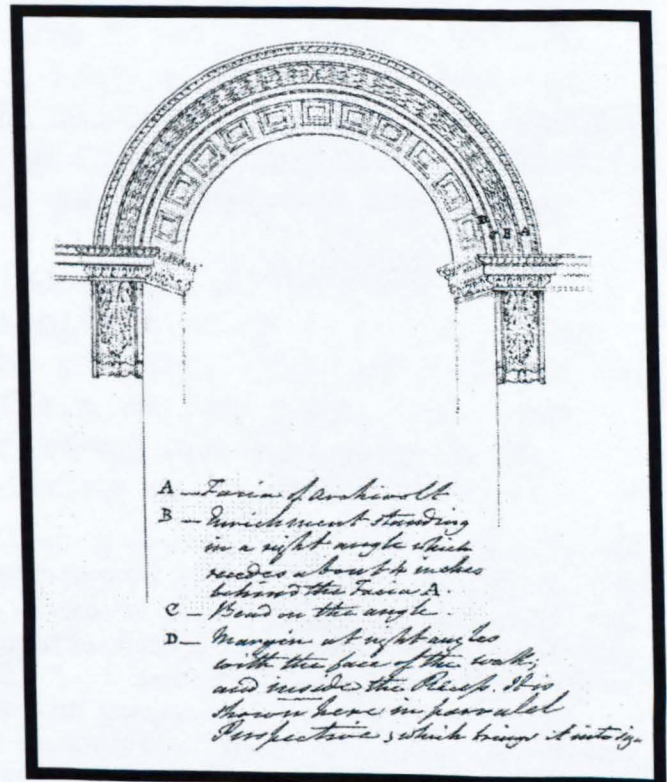 B C B A
A — Facia of archivolt
B — Enrichment standing
in a right angle which
recedes about 4 inches
behind the Facia A.
C — Bead on the angle
D — Margin at right angles
with the face of the wall;
and inside the Recess. It is
shown here in parralel
Perspective, which brings it into